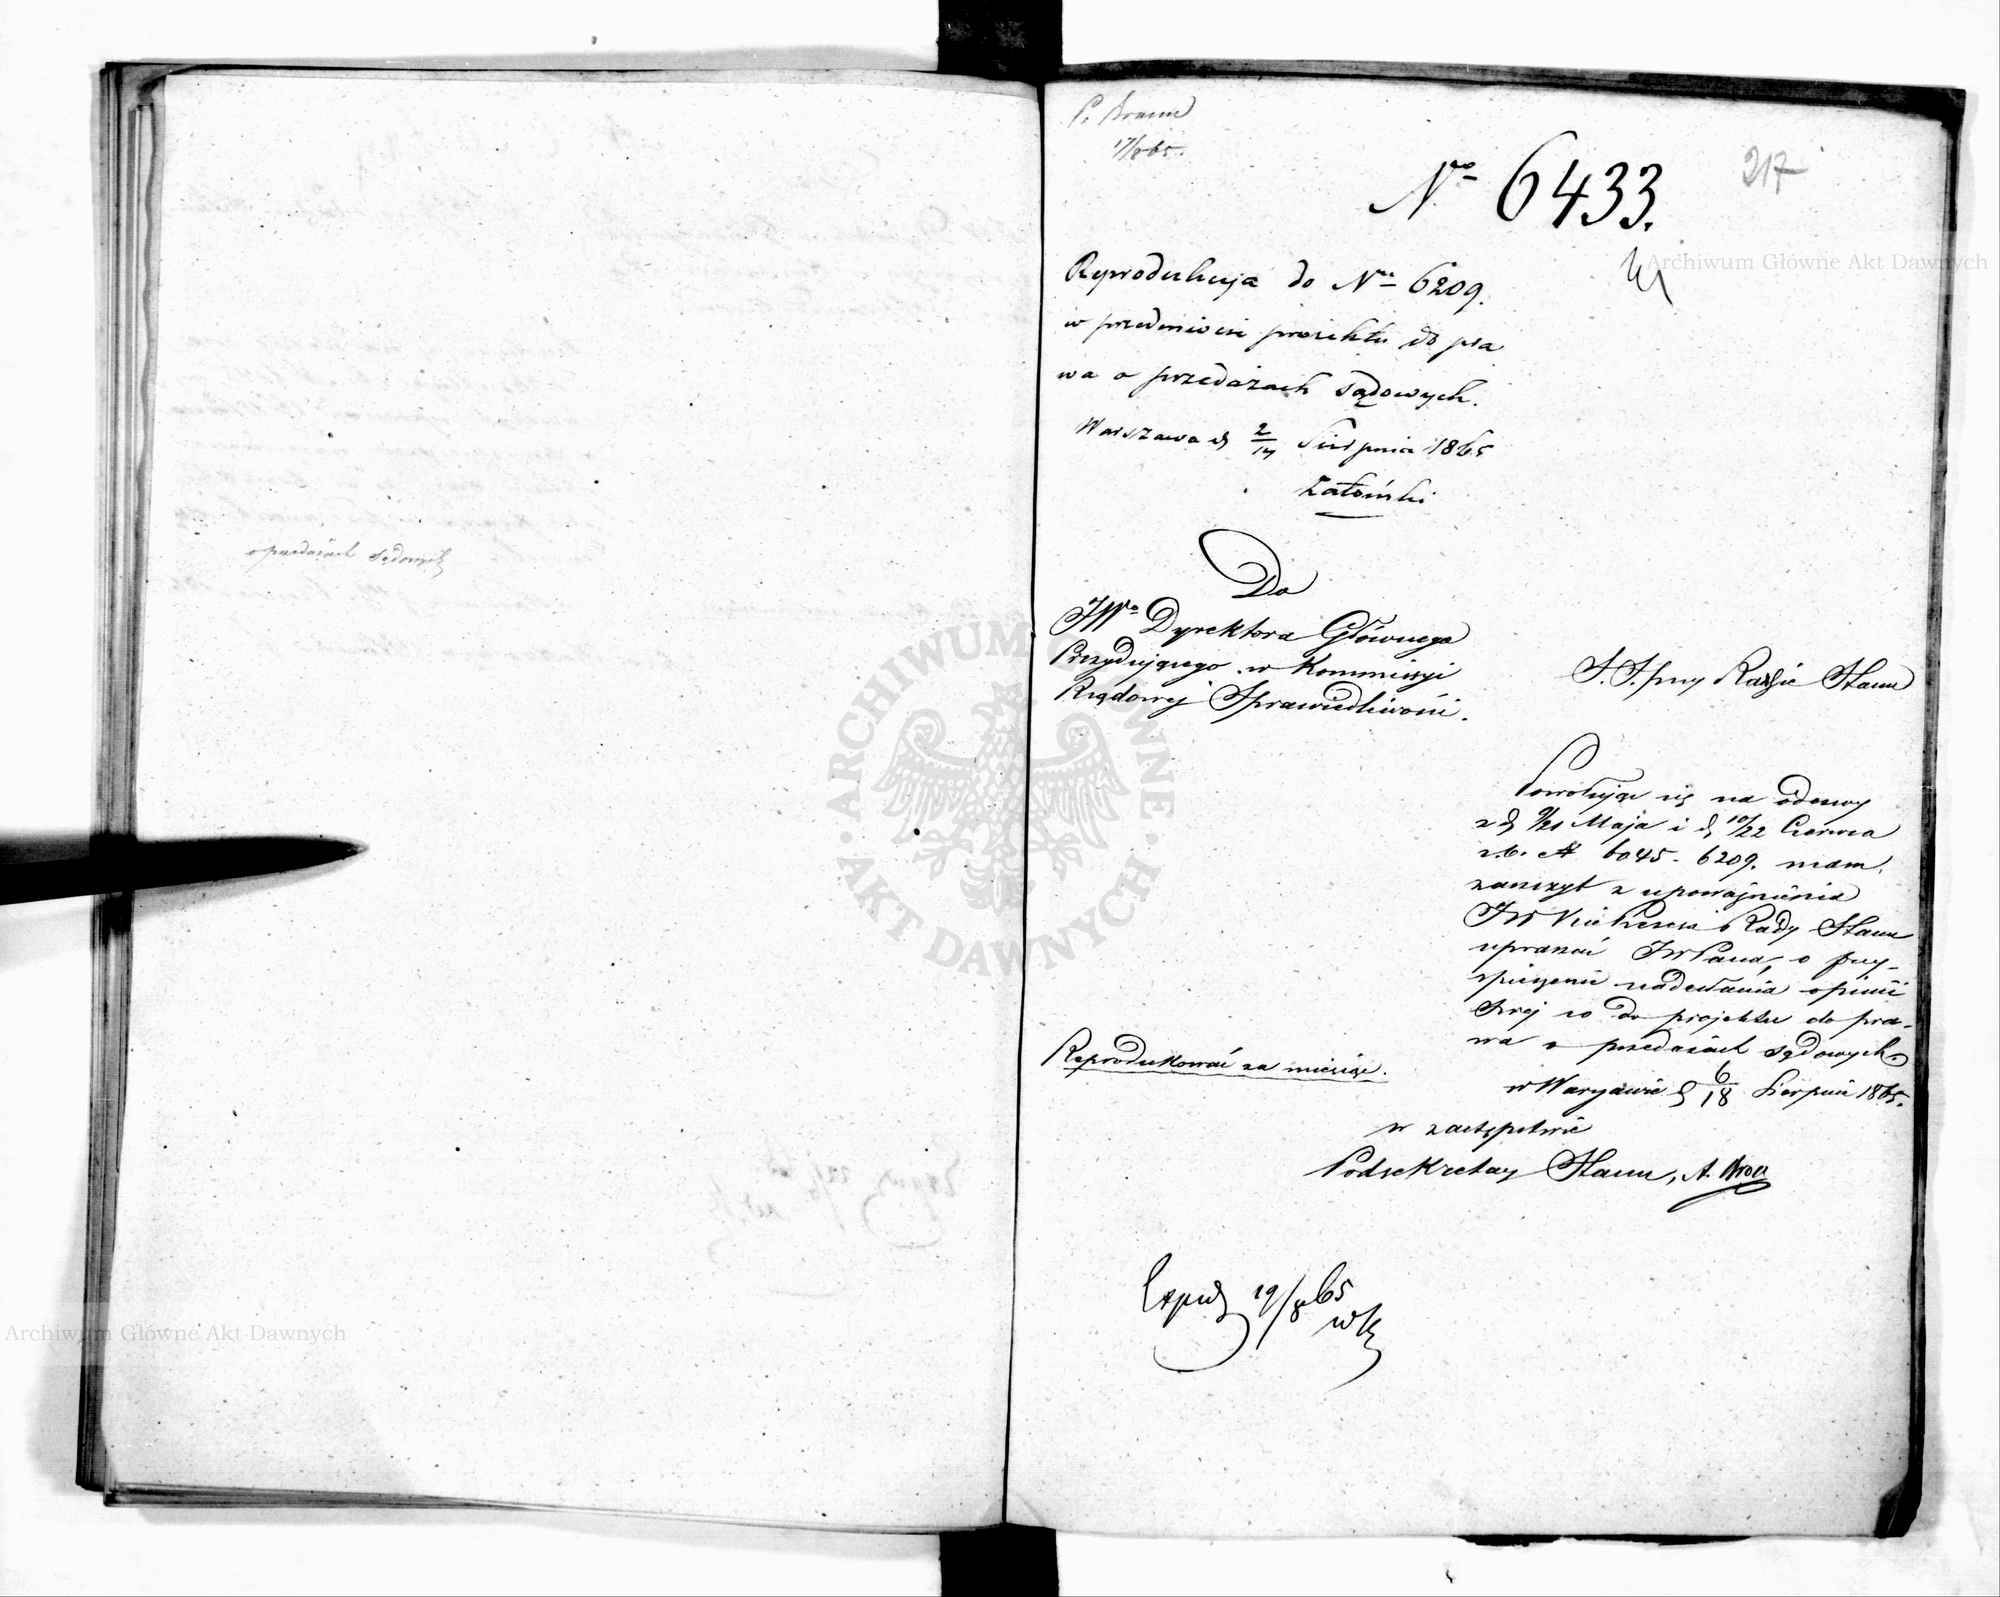 o przedażach sądowych
P. Braun
17/8 65.
No 6433.
217
Reprodukcja do Nru 6209.
w przedmiocie projektu do pra
wa o przedażach sądowych.
Warszawa d. 2/14 Sierpnia 1865
Załoński
Do
JWo Dyrektora Głównego
Prezydującego w Kommissyi
Rządowej Sprawiedliwości.
S. S. przy Radzie Stanu
Powołując się na odezwy
z d. 9/21 Maja i d. 10/22 Czerwca
r. b. N 6045. 6209. mam
zaszczyt z upoważnienia
JW Vice Prezesa Rady Stanu
upraszać JWPana, o przy-
spieszenie nadesłania opinii
Swej co do projektu do pra-
wa o przedażach sądowych.
Reprodukować za miesiąc.
w Warszawie d. 6/18 Sierpnia 1865.
w zastępstwie
Podsekretarz Stanu, A.
Exped 19/8 65
Archiwum Główne Akt Dawnych
Archiwum Główne Akt Dawnych
ARCHIWUM GŁÓWNE
AKT DAWNYCH